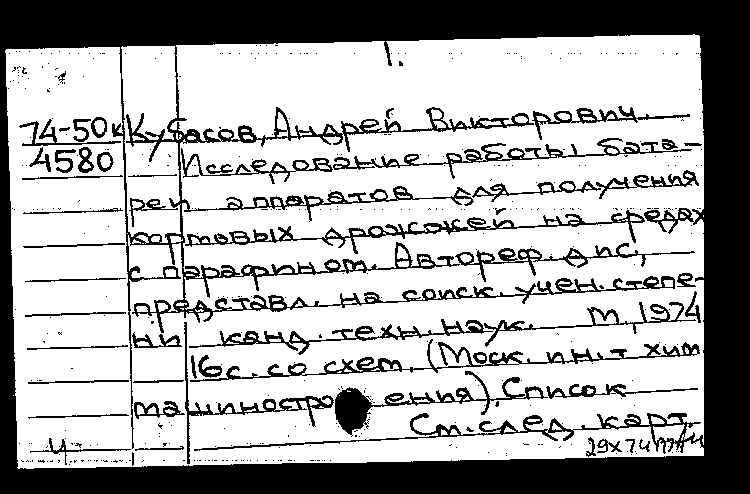 1.
74-50к Кубасов, Андрей Викторович.
4580 Исследование работы бата-
реи аппаратов для получения
кормовых дрожжей на средах
с парафином. Автореф. дис.,
представл. на соиск. учен. степе-
ни канд. техн. наук. М., 1974
16с. со схем. (Моск. ин-т хим.
машиностроения). Список
См. след. карт.
ч 29х74